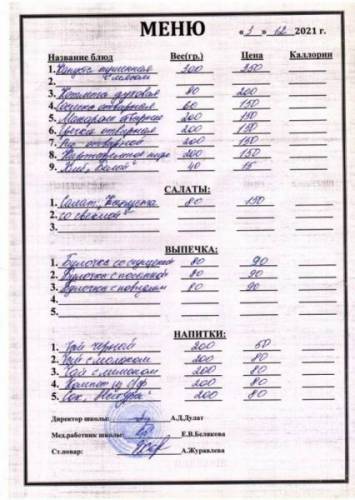 МЕНЮ
« 3 » 12 2021 г.
Название блюд Вес(гр.) Цена Каллории
1. Капуста тушенная 200 250
2. с мясом
3. Котлета духовая 80 200
4. отварная 60 150
5. Макароны отварные 200 150
6. Гречка отварная 200 150
7. Рис отварной 200 150
8. Картофельное пюре 200 150
9. Хлеб белый 40 15
САЛАТЫ:
1. Салат: Капуста 80 150
2. со свеклой
3.
ВЫПЕЧКА:
1. Булочка со 80 90
2. Булочка с 80 90
3. Булочка с повидлом 80 90
4.
5.
НАПИТКИ:
1. Чай черный 200 50
2. Чай с молоком 200 80
3. Чай с лимоном 200 80
4. Компот из с/ф 200 80
5. Сок 200 80
Директор школы: А.Д.Дулат
Мед.работник школы: Е.В.Белякова
Ст.повар: А.Журавлева